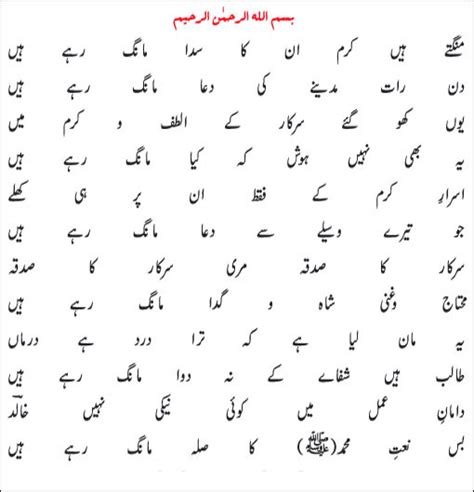 بسم الله الرحمٰن الرحیم
منگتے ہیں کرم ان کا سدا مانگ رہے ہیں
دن رات مدینے کی دعا مانگ رہے ہیں
یوں کھو گئے سرکار کے الطف و کرم میں
یہ بھی نہیں ہوش کہ کیا مانگ رہے ہیں
اسرارِ کرم کے فقط ان پر ہی کھلے
جو تیرے وسیلے سے دعا مانگ رہے ہیں
سرکار کا صدقہ مری سرکار کا صدقہ
محتاج وغنی شاہ و گدا مانگ رہے ہیں
یہ مان لیا ہے کہ ترا درد ہے درماں
طالب ہیں شفاے کے نہ دوا مانگ رہے ہیں
دامانِ عمل میں کوئی نیکی نہیں خالدؔ
بس نعتِ محمد(ﷺ) کا صلہ مانگ رہے ہیں